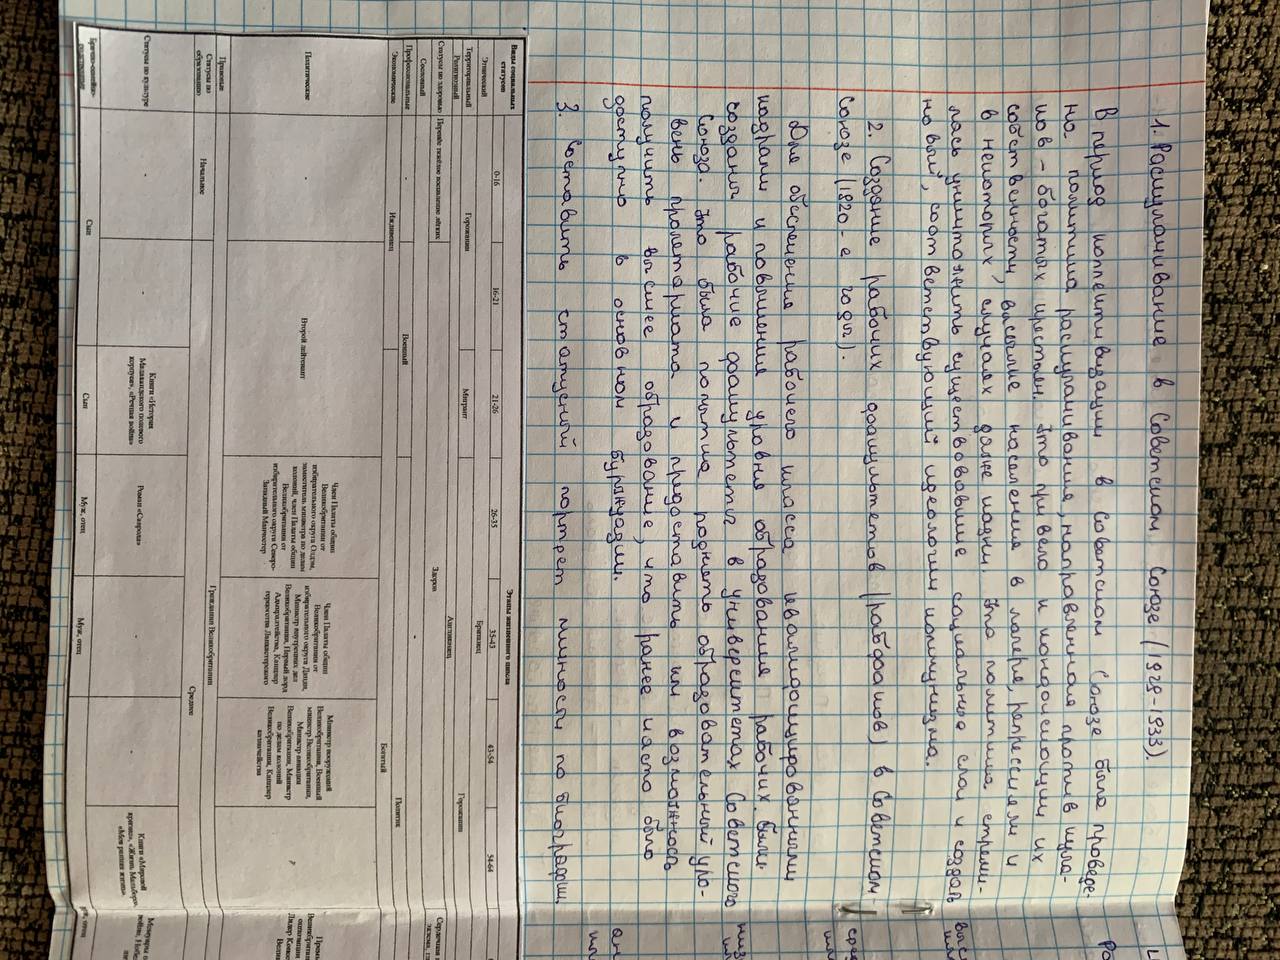 1. Раскулачивание в Советском Союзе (1928-1933).
В период коллективизации в Советском Союзе была проведе-
на политика раскулачивания, направленная против кула-
ков - богатых крестьян. Это привело к конфискации их
собственности, высылке населения в лагере, репрессиям и
в некоторых случаях даже казни. Эта политика стреми-
лась уничтожить существовавшие социальные слои и создать
новый, соответствующий идеологии коммунизма.
2. Создание рабочих факультетов (рабфаков) в Советском
Союзе (1920-е годы).
Для обеспечения рабочего класса квалифицированными
кадрами и повышения уровня образования рабочих были
созданы рабочие факультеты в университетах Советского
Союза. Это была попытка поднять образовательный уро-
вень пролетариата и предоставить им возможность
получить высшее образование, что ранее часто было
доступно в основном буржуазии.
3. Составить статусный портрет личности по биографии
Виды социальных статусов
Этапы жизненного цикла
0-16
16-21
21-26
26-35
35-43
43-54
54-64
Этнический
Британец
Территориальный
Горожанин
Мигрант
Горожанин
Религиозный
Англиканец
Статусы по здоровью
Перенёс тяжёлое воспаление лёгких
Здоров
Сословный
-
Профессиональные
Иждивенец
Военный
Политик
Экономические
Богатый
Политические
-
Второй лейтенант
Член Палаты общин
Великобритании от
избирательного округа Олдэм,
заместитель министра по делам
колоний, член Палаты общин
Великобритании от
избирательного округа Северо-
Западный Манчестер
Член Палаты общин
Великобритании от
избирательного округа Данди,
Министр внутренних дел
Великобритании, Первый лорд
Адмиралтейства, Канцлер
герцогства Ланкастерского
Министр вооружений
Великобритании, Военный
министр Великобритании,
Министр авиации
Великобритании, Министр
по делам колоний
Великобритании, Канцлер
казначейства
Правовые
Гражданин Великобритании
Статусы по образованию
Начальное
Среднее
Статусы по культуре
-
-
Книги «История
Малакандского полевого
корпуса», «Речная война»
Роман «Саврола»
-
-
Книги «Мировой
кризис», «Жизнь Мальборо»,
«Моя ранняя жизнь»
Брачно-семейно-
родственные
Сын
Сын
Муж, отец
Муж, отец